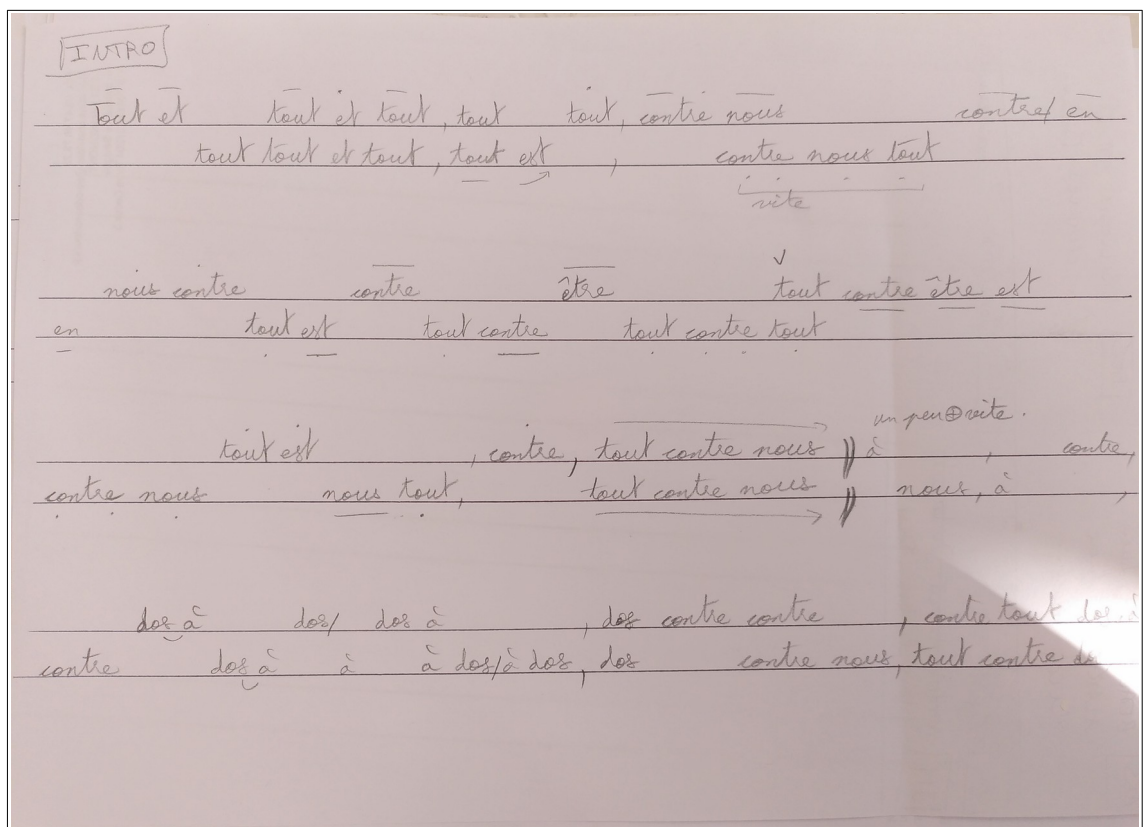 INTRO
Tout et tout et tout, tout tout, contre nous contre/ en
tout tout et tout, tout est , contre nous tout
vite
nous contre contre être tout contre être est
en tout est tout contre tout contre tout
un peu ⊕ vite.
tout est , contre, tout contre nous // à , contre,
contre nous nous tout, tout contre nous // nous, à ,
dos à dos/ dos à , dos contre contre , contre tout dos à
contre dos à à à dos/à dos, dos contre nous, tout contre